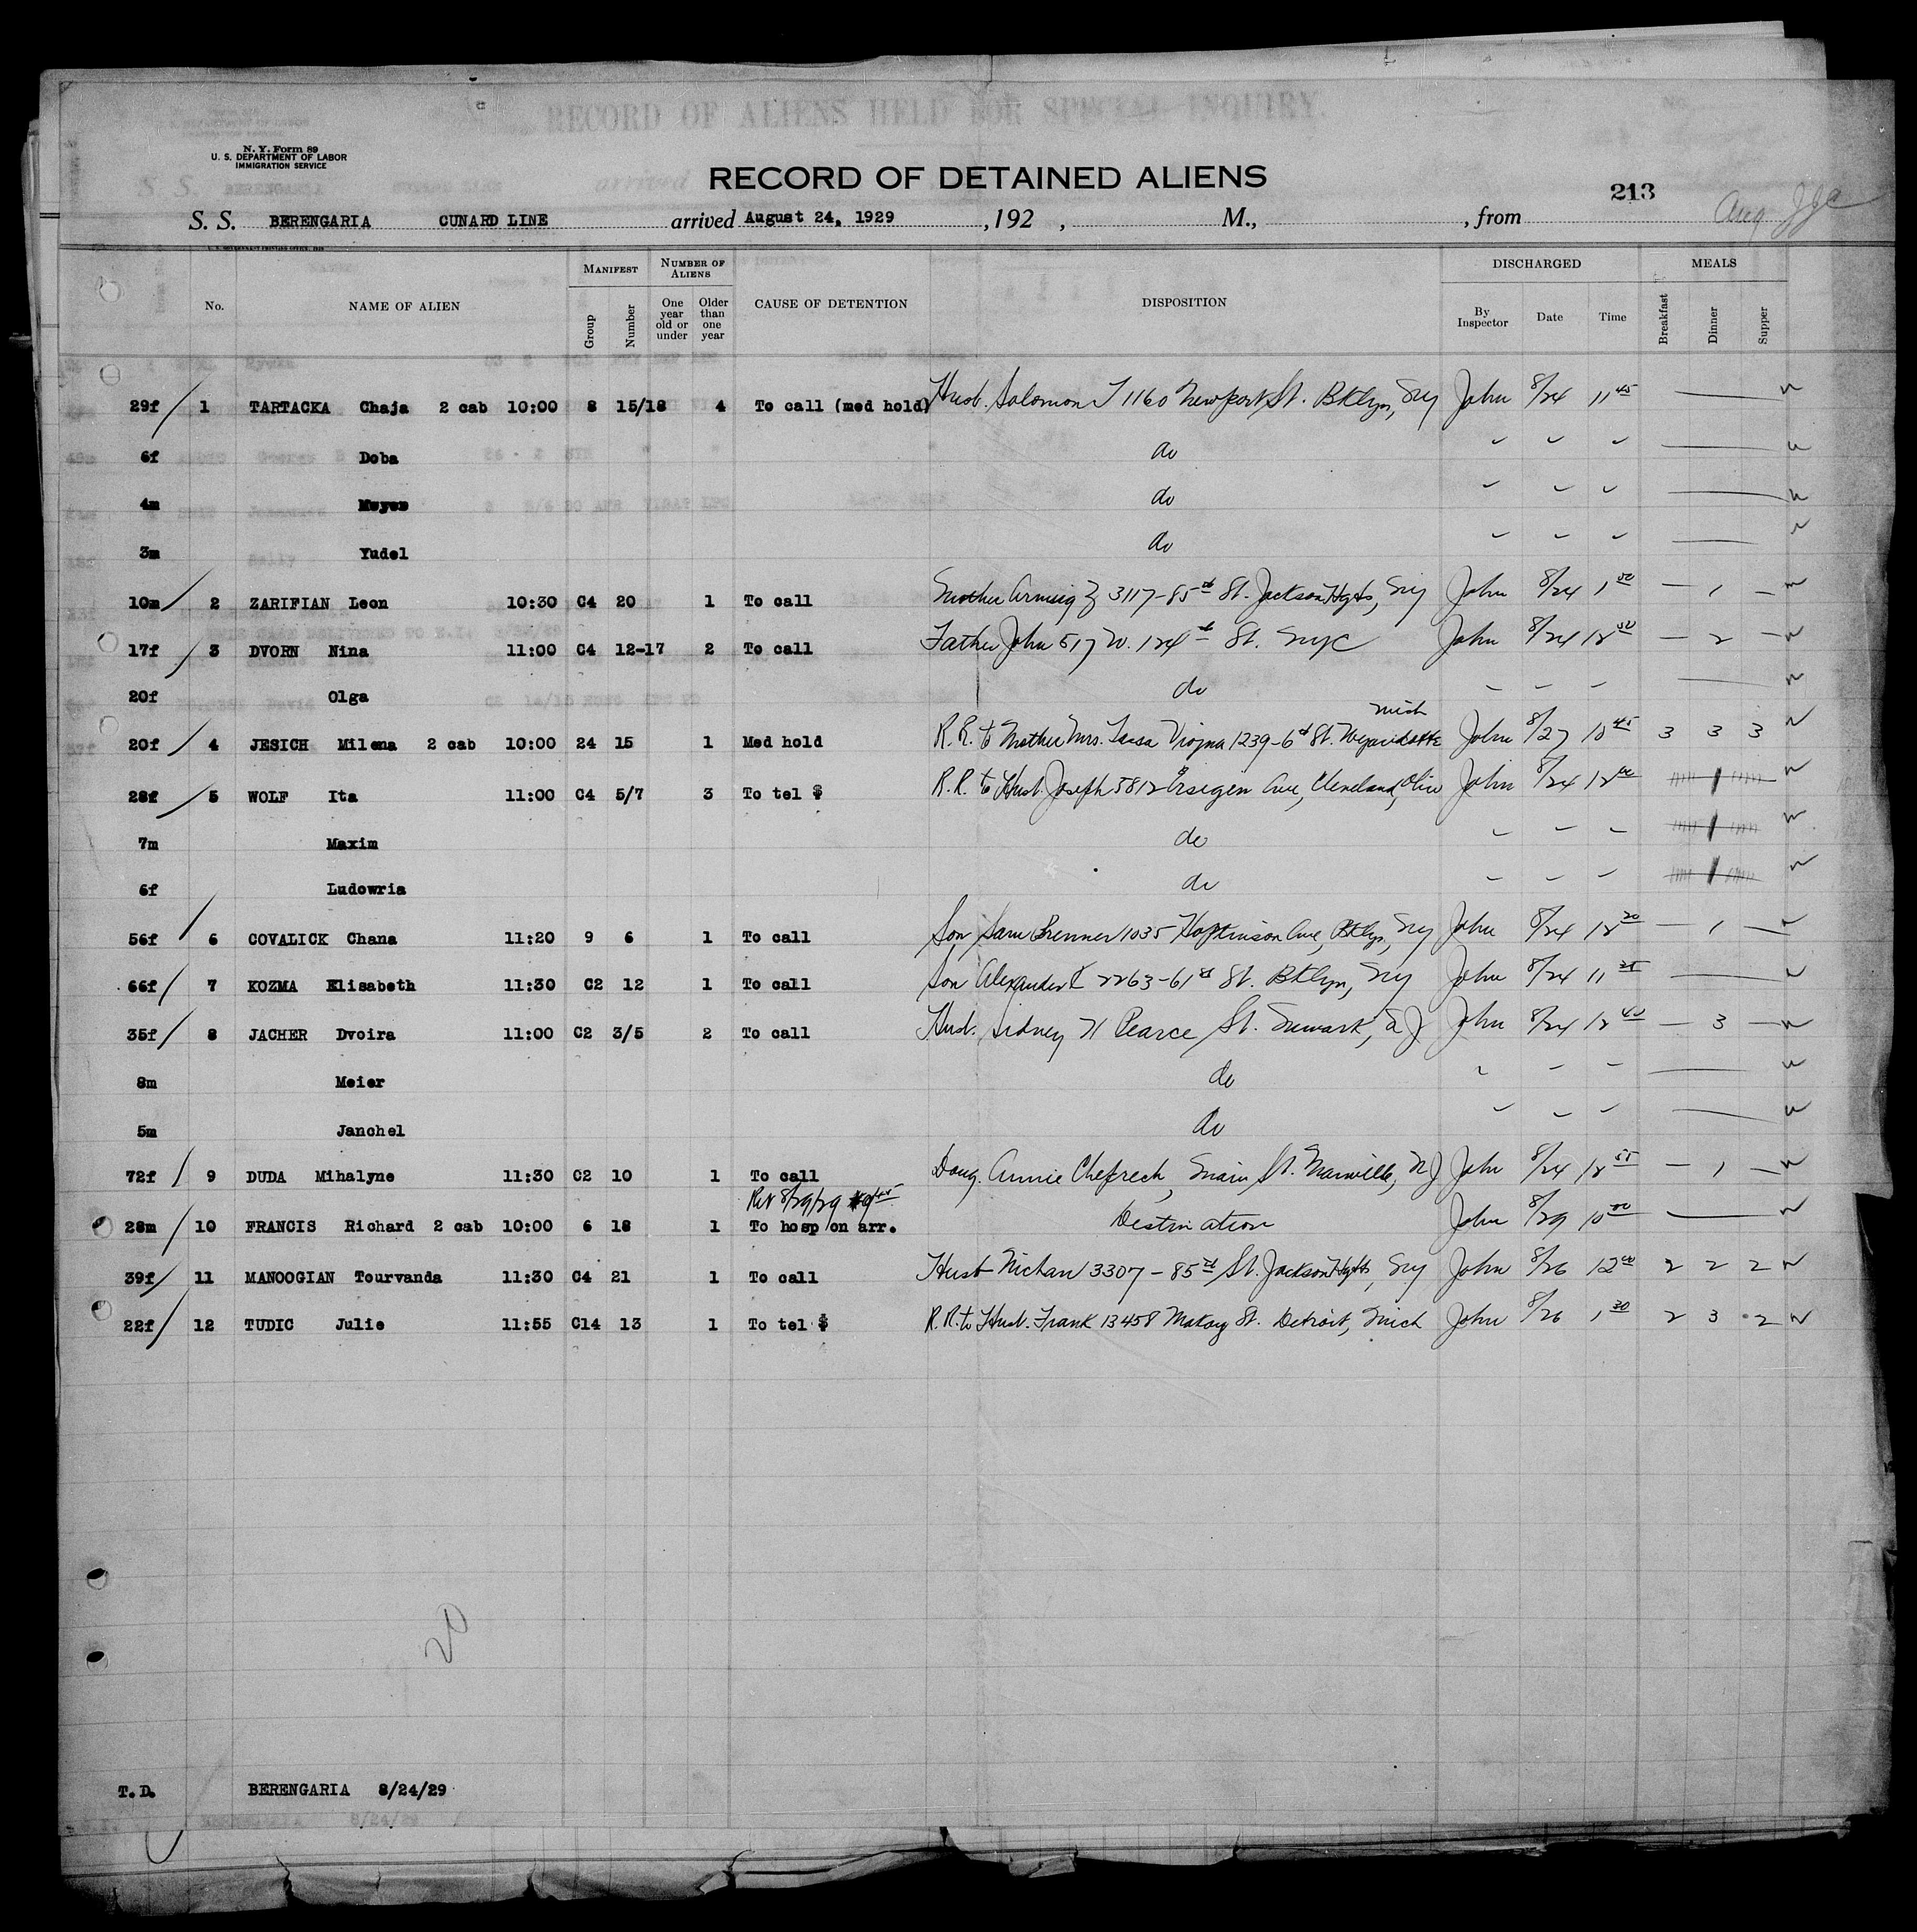 RECORD OF ALIENS HELD FOR SPECIAL INQUIRY.
N. Y. Form 89
U. S. DEPARTMENT OF LABOR
IMMIGRATION SERVICE
RECORD OF DETAINED ALIENS
213
S. S. BERENGARIA CUNARD LINE arrived August 24, 1929 , 192 , M., , from Aug
No. NAME OF ALIEN MANIFEST Group Number NUMBER OF ALIENS One year old or under Older than one year CAUSE OF DETENTION DISPOSITION DISCHARGED By Inspector Date Time MEALS Breakfast Dinner Supper
29f / 1 TARTACKA Chaja 2 cab 10:00 8 15/18 4 To call (med hold) Husb. Solomon T 1160 Newport St. Bklyn, NY John 8/24 11 45
6f Doba do
4m Meyes do
3m Yudel do
10m / 2 ZARIFIAN Leon 10:30 C4 20 1 To call Mother Armsig Z 3117-85th St. Jackson Hgts, NY John 8/24 1 00 — 1 —
17f / 3 DVORN Nina 11:00 C4 12-17 2 To call Father John 517 W. 124th St. NYC John 8/24 12 00 — 2 —
20f Olga do
20f / 4 JESICH Milena 2 cab 10:00 24 15 1 Med hold R.R. to Mother Mrs. 1239-6th St. Wyandotte Mich John 8/27 10 45 3 3 3
28f / 5 WOLF Ita 11:00 C4 5/7 3 To tel $ R.R. to Husb. Joseph 5812 Ave, Cleveland, Ohio John 8/24 12 00 1
7m Maxim do 1
6f Ludowria do 1
56f / 6 COVALICK Chana 11:20 9 6 1 To call Son Sam Brenner 1035 Hopkinson Ave, Bklyn, NY John 8/24 12 20 — 1 —
66f / 7 KOZMA Elisabeth 11:30 C2 12 1 To call Son Alexander K 2263-61st St. Bklyn, NY John 8/24 11 25
35f / 8 JACHER Dvoira 11:00 C2 3/5 2 To call Husb. Sidney 71 Pearce St. Newark, NJ John 8/24 12 40 — 3 —
8m Meier do
5m Janchel do
72f / 9 DUDA Mihalyne 11:30 C2 10 1 To call Daug. Annie Main St. Manville, NJ John 8/24 12 55 — 1 —
Ret 8/29/29 9 45
28m / 10 FRANCIS Richard 2 cab 10:00 6 18 1 To hosp on arr. Destination John 8/29 10 00
39f / 11 MANOOGIAN Tourvanda 11:30 C4 21 1 To call Husb Nichan 3307-85th St. Jackson Hgts, NY John 8/26 12 00 2 2 2
22f / 12 TUDIC Julie 11:55 C14 13 1 To tel $ R.R. to Husb. Frank 13458 St. Detroit, Mich John 8/26 1 30 2 3 2
20
T.D. BERENGARIA 8/24/29